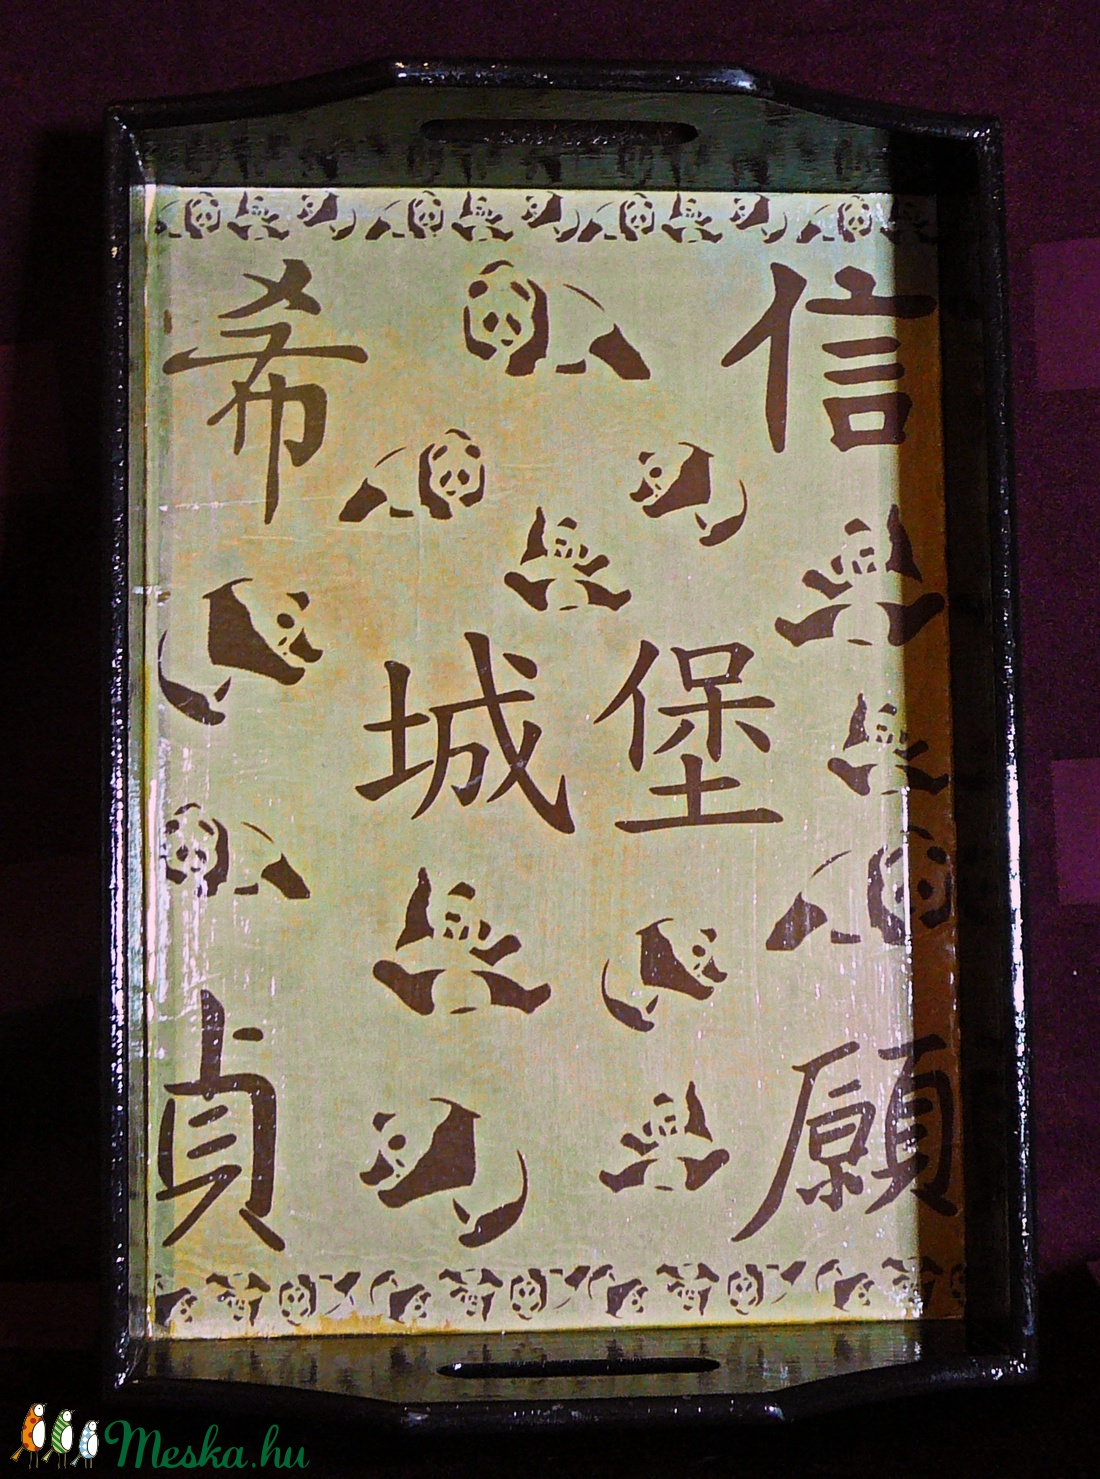 希 信
城堡
貞 願
Meska.hu